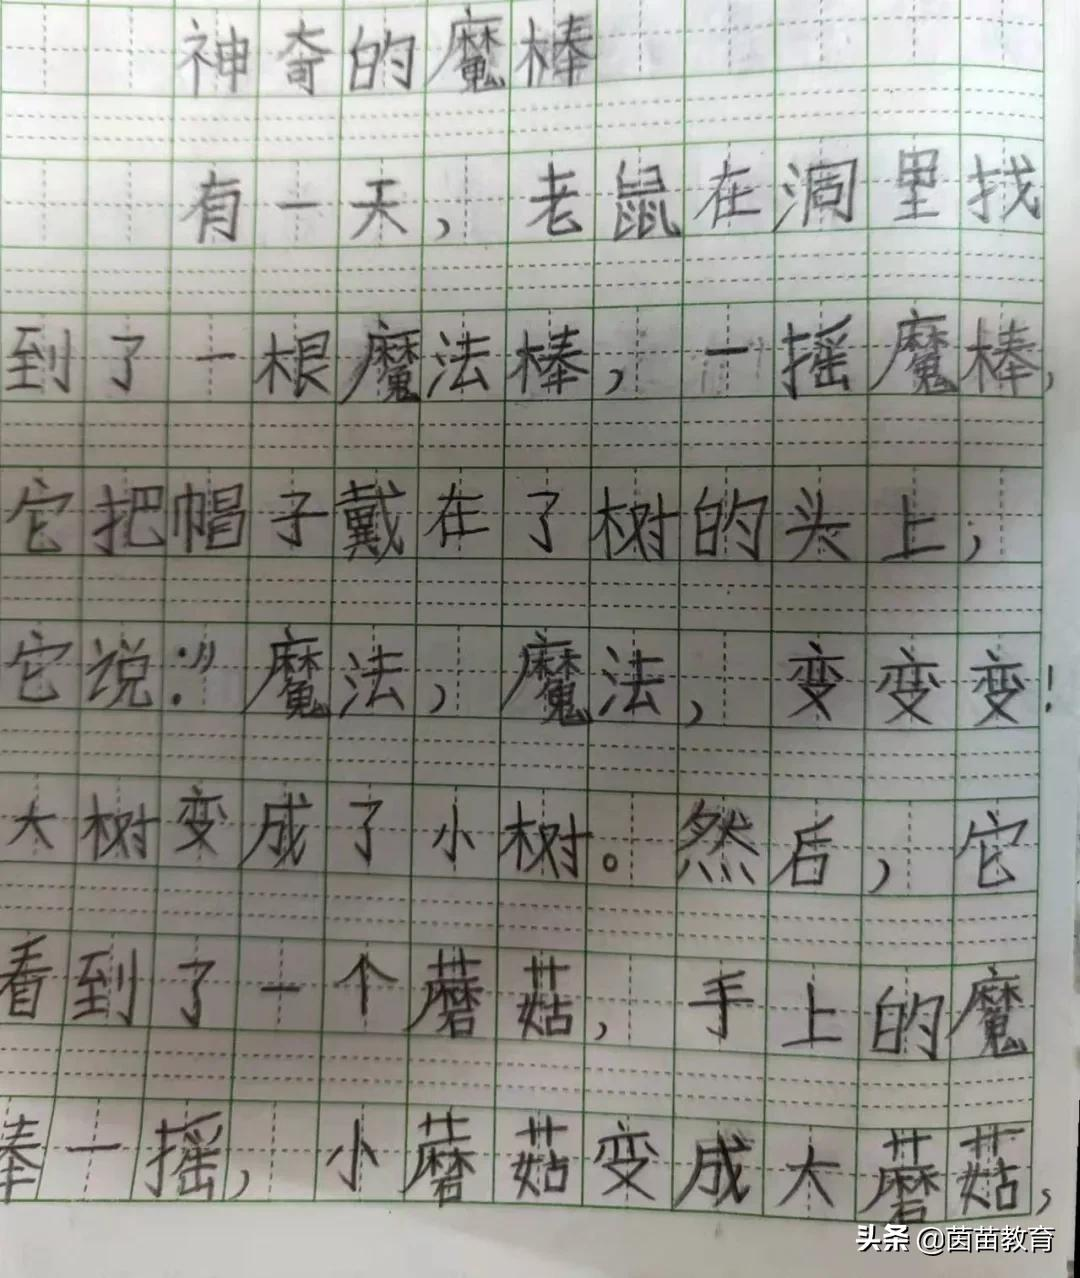 神奇的魔棒
有一天，老鼠在洞里找
到了一根魔法棒，一摇魔棒，
它把帽子戴在了树的头上，
它说：“魔法，魔法，变变变！
大树变成了小树。然后，它
看到了一个蘑菇，手上的魔
棒一摇，小蘑菇变成大蘑菇，
头条 @茵苗教育